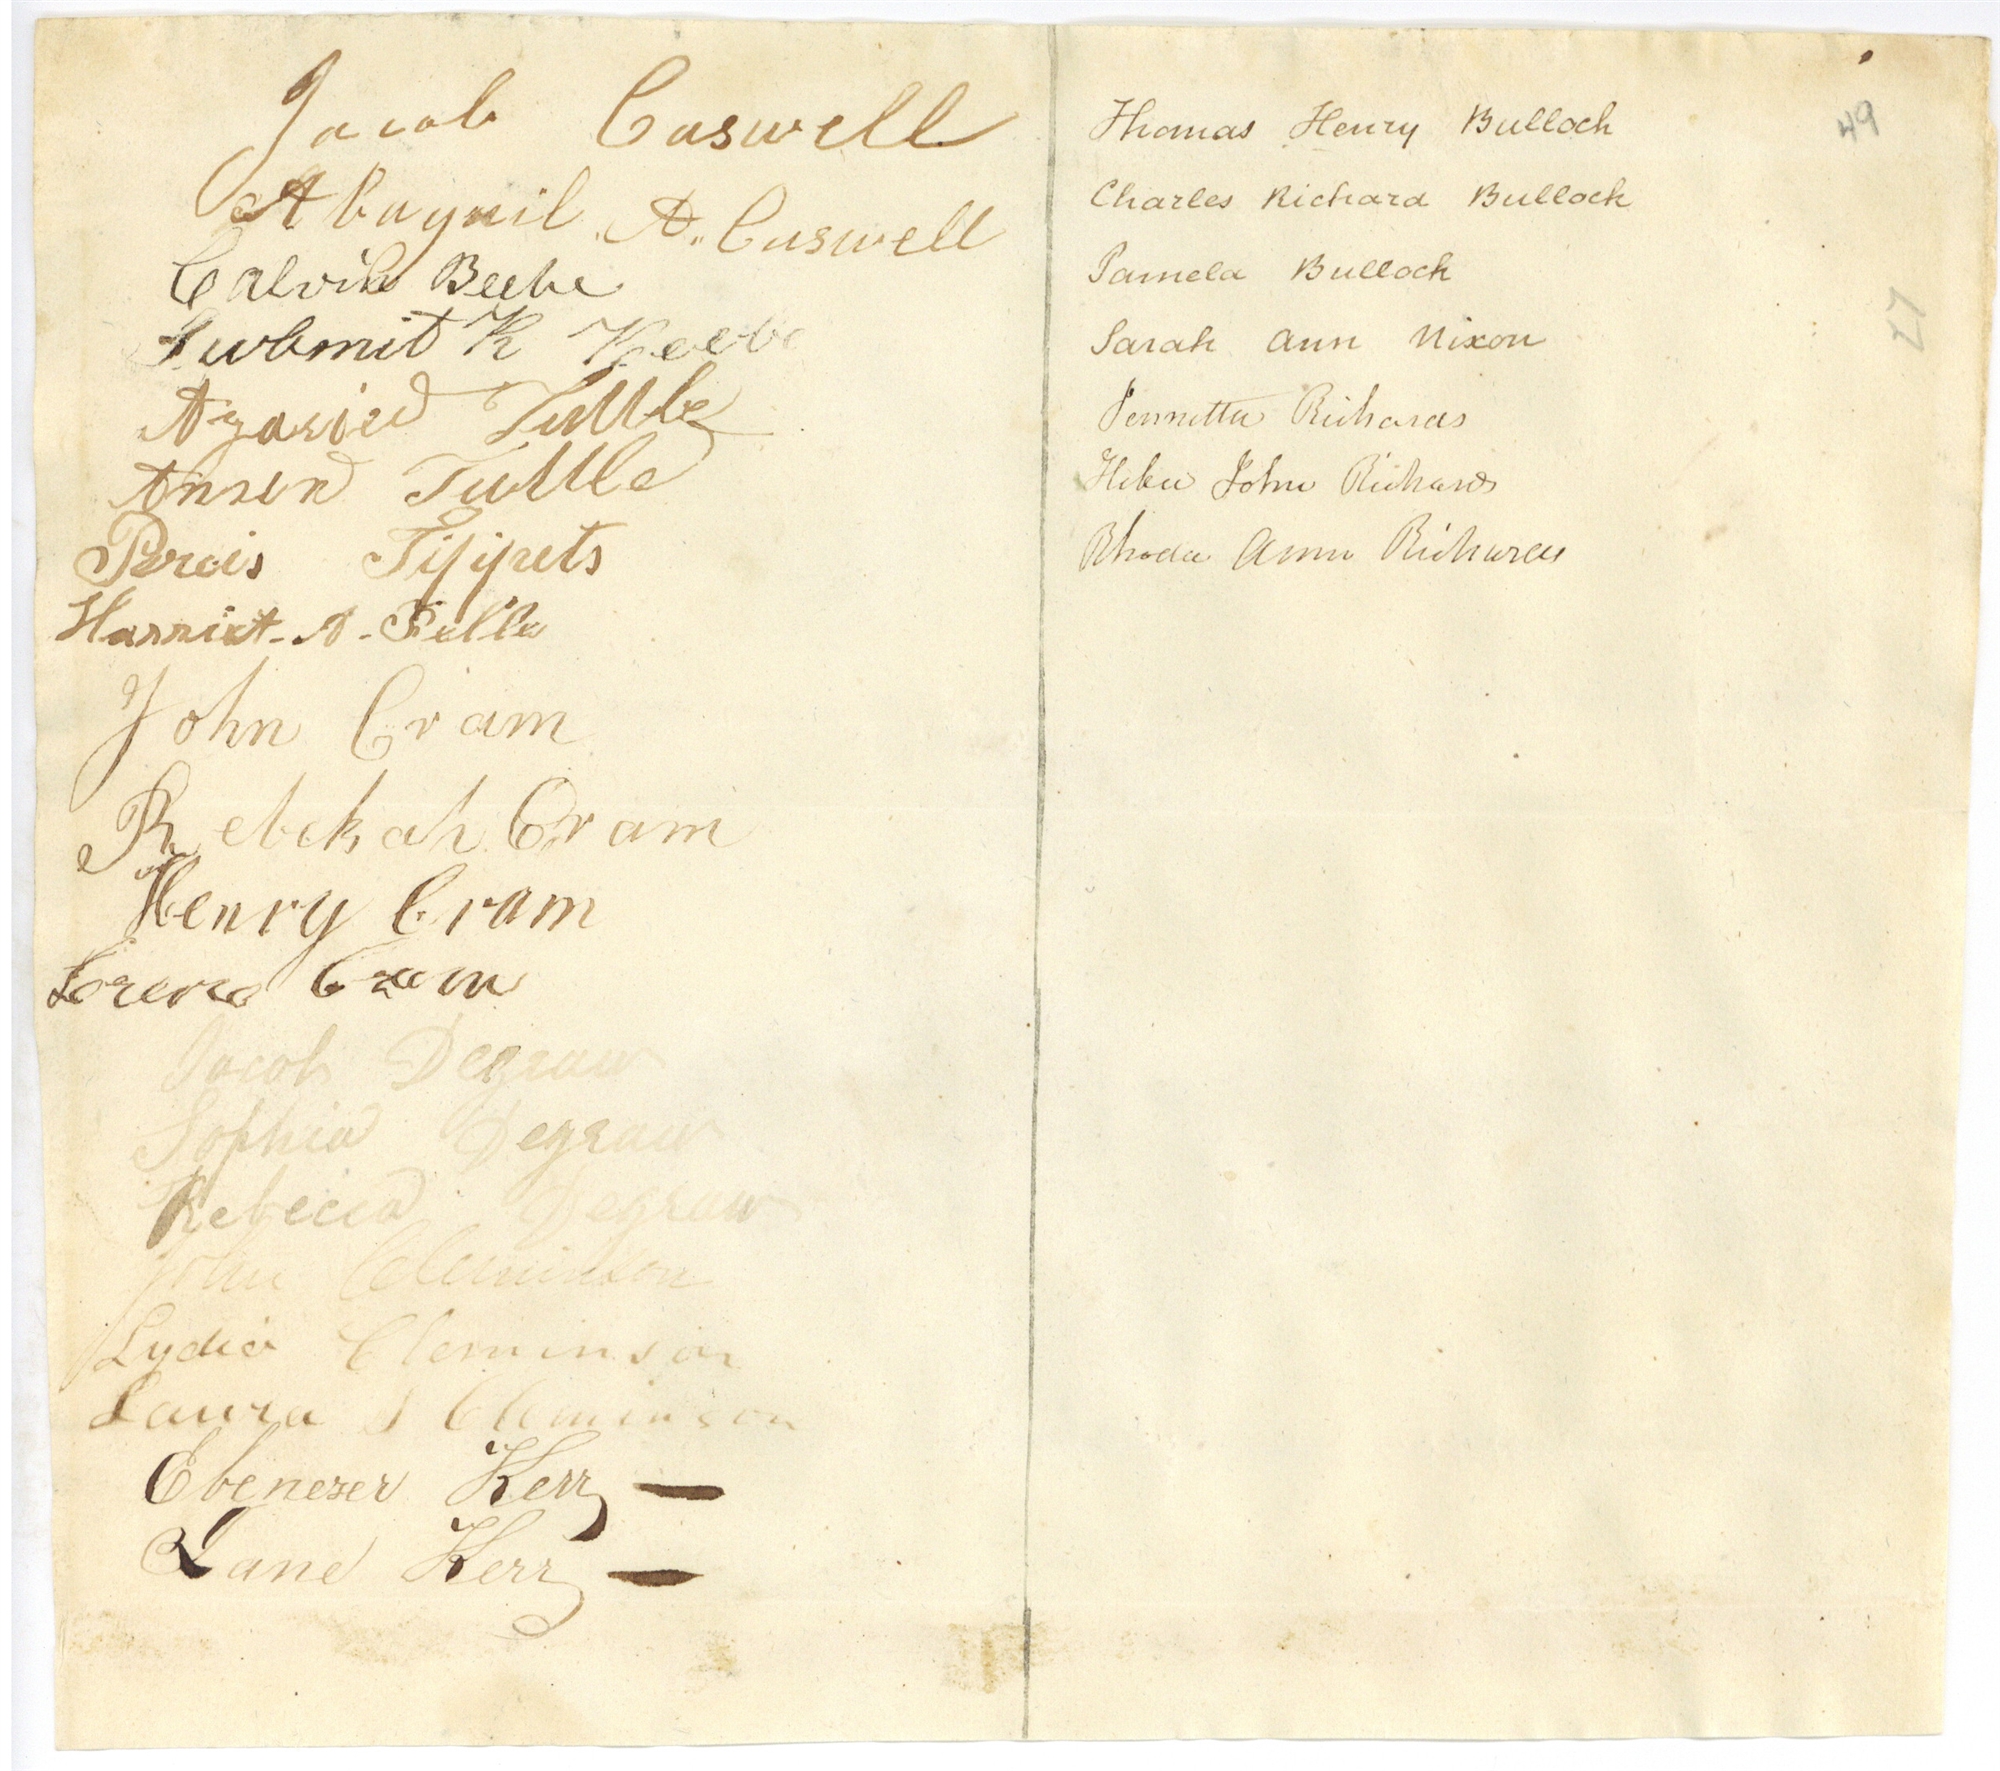 Jacob Caswell
Abagail A. Caswell
Calvin Beebe
Submit R
Azariel Tuttle
Ansen Tuttle
Persis Tippets
Harriet A.
John Cram
Rebekah Cram
Henry Cram
Cram
Jacob Degraw
Sophia Degraw
Rebecca Degraw
John Cleminson
Lydia Cleminson
Laura J Cleminson
Ebenezer Kerr
Jane Kerr
49
Thomas Henry Bulloch
Charles Richard Bullock
Pamela Bulloch
Sarah Ann Nixon
Jennetta Richards
Heber John Richards
Rhoda Ann Richards